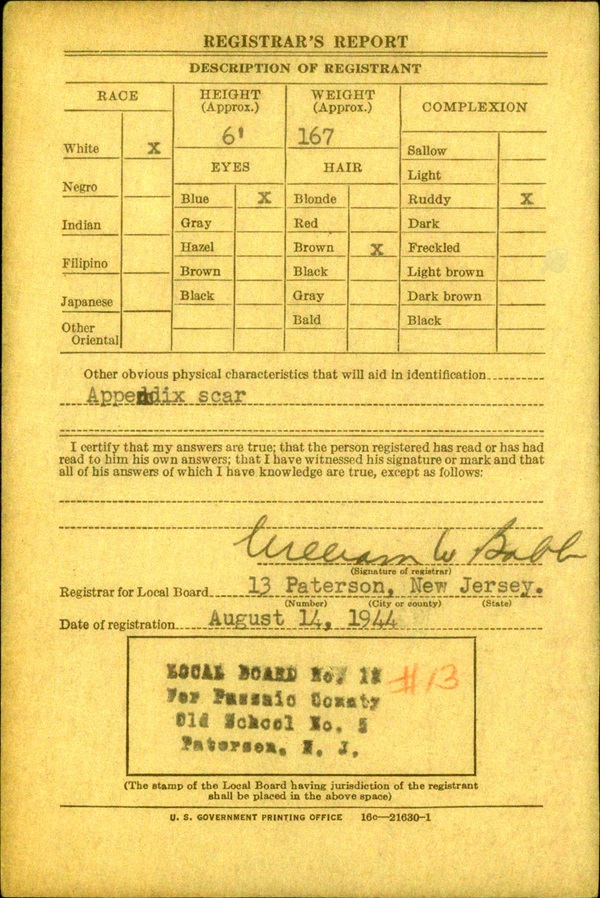 REGISTRAR'S REPORT
DESCRIPTION OF REGISTRANT
RACE
HEIGHT
(Approx.)
WEIGHT
(Approx.)
COMPLEXION
6'
167
White X
Negro
Indian
Filipino
Japanese
Other
Oriental
EYES
Blue X
Gray
Hazel
Brown
Black
HAIR
Blonde
Red
Brown X
Black
Gray
Bald
Sallow
Light
Ruddy X
Dark
Freckled
Light brown
Dark brown
Black
Other obvious physical characteristics that will aid in identification
Appendix scar
I certify that my answers are true; that the person registered has read or has had
read to him his own answers; that I have witnessed his signature or mark and that
all of his answers of which I have knowledge are true, except as follows:
William W Babb
(Signature of registrar)
Registrar for Local Board 13 Paterson, New Jersey.
(Number) (City or county) (State)
Date of registration August 14, 1944
LOCAL BOARD No. #13
For Passaic County
Old School No. 5
Paterson, N. J.
(The stamp of the Local Board having jurisdiction of the registrant
shall be placed in the above space)
U. S. GOVERNMENT PRINTING OFFICE 16c—21630-1